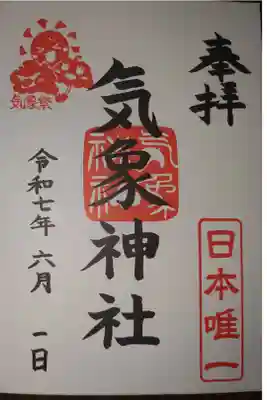 奉拝
日本唯一
気象神社
気象神社
気象祭
令和七年六月一日